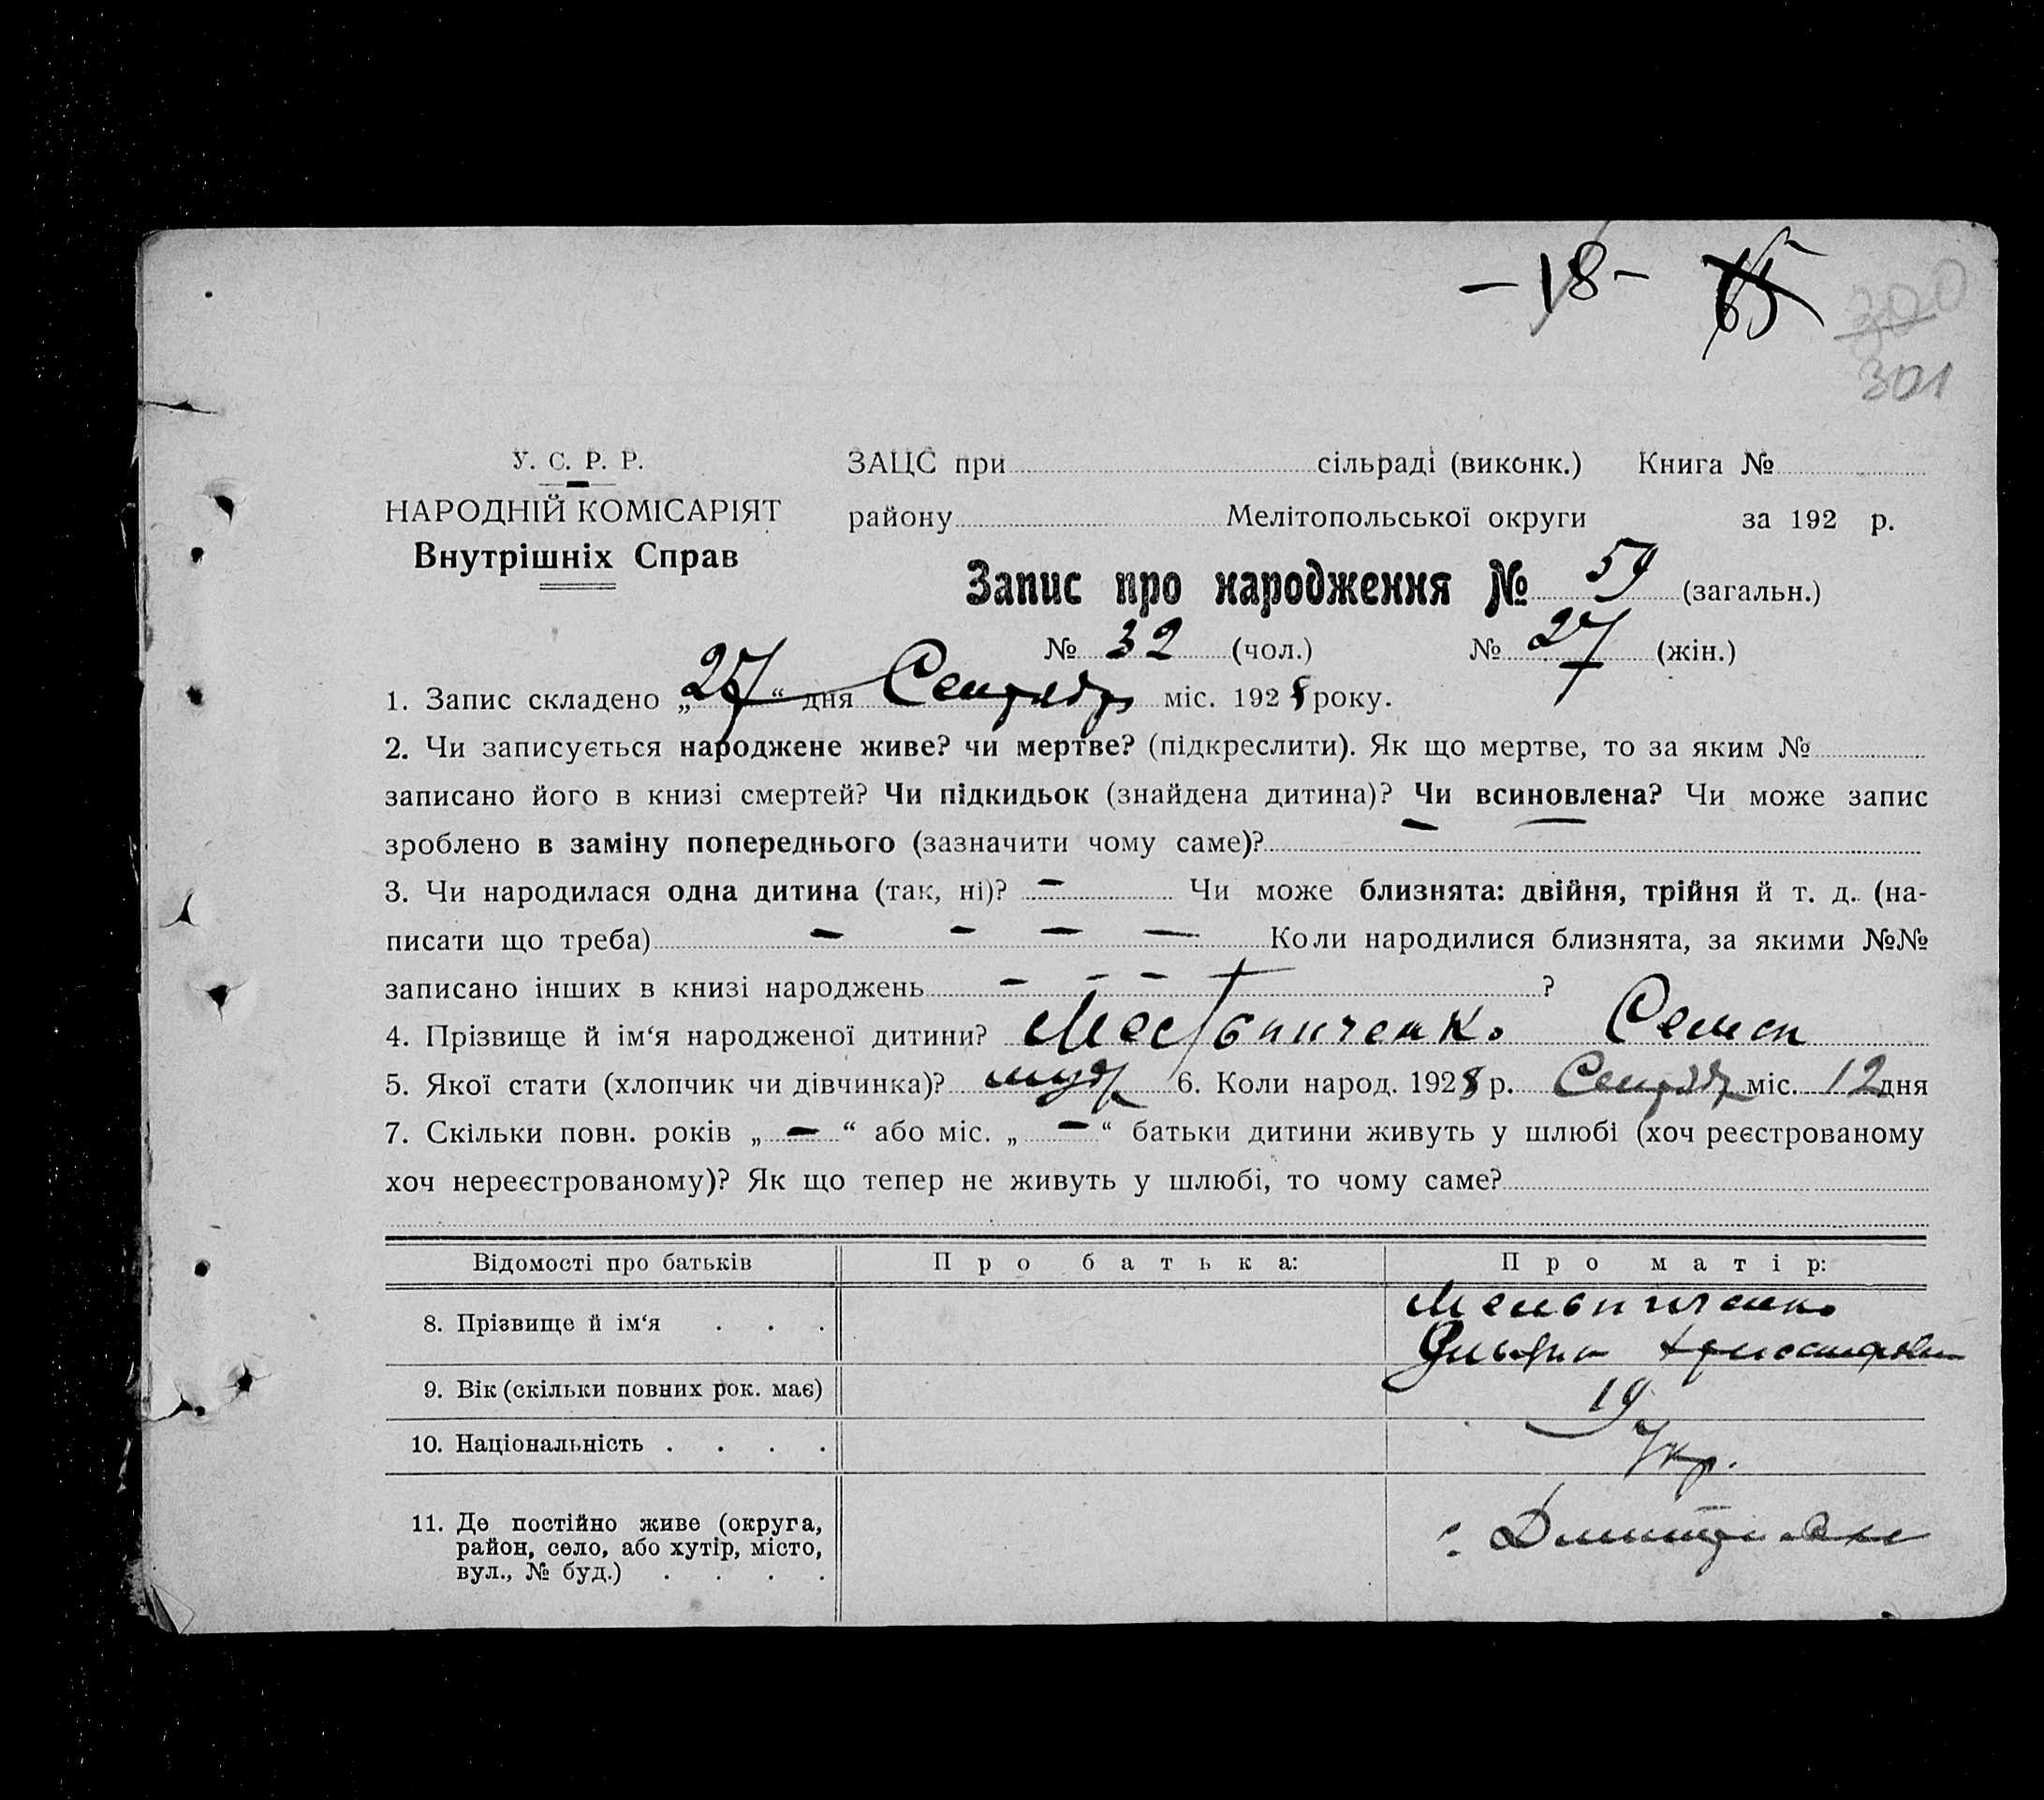 - 18 - 65 300
301
У. С. Р. Р.
НАРОДНІЙ КОМІСАРІЯТ
Внутрішніх Справ
ЗАЦС при сільраді (виконк.) Книга №
району Мелітопольської округи за 192 р.
Запис про народження № 59 (загальн.)
№ 32 (чол.) № 27 (жін.)
1. Запис складено „27“ дня Сентябр міс. 1928 року.
2. Чи записується народжене живе? чи мертве? (підкреслити). Як що мертве, то за яким №
записано його в книзі смертей? Чи підкидьок (знайдена дитина)? Чи всиновлена? Чи може запис
зроблено в заміну попереднього (зазначити чому саме)?
3. Чи народилася одна дитина (так, ні)? — Чи може близнята: двійня, трійня й т. д. (на-
писати що треба) — — — — Коли народилися близнята, за якими №№
записано інших в книзі народжень — — — ?
4. Прізвище й ім‘я народженої дитини? Семен
5. Якої стати (хлопчик чи дівчинка)? муж 6. Коли народ. 1928 р. Сентябр міс. 12 дня
7. Скільки повн. років „ — “ або міс. „ — “ батьки дитини живуть у шлюбі (хоч реєстрованому
хоч нереєстрованому)? Як що тепер не живуть у шлюбі, то чому саме?
Відомості про батьків Про батька: Про матір:
8. Прізвище й ім‘я . . . Мельниченко
9. Вік (скільки повних рок. має) 19
10. Національність . . . . Укр.
11. Де постійно живе (округа,
район, село, або хутір, місто,
вул., № буд.) . . . .